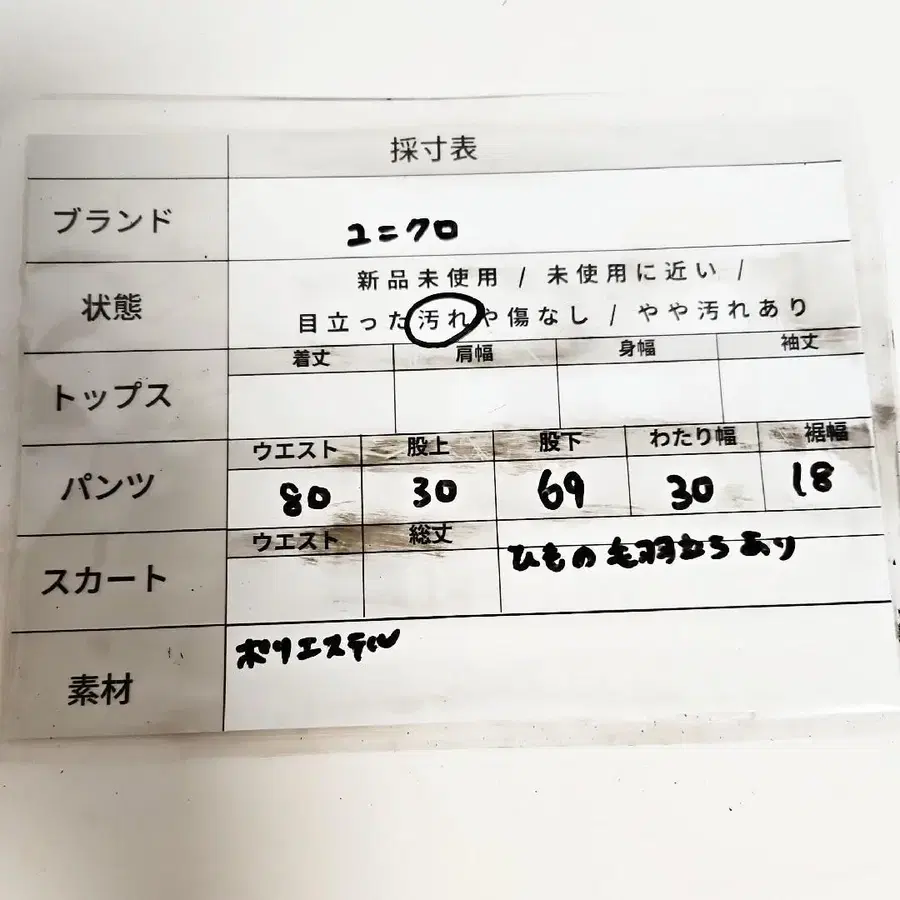 採寸表
ブランド
ユニクロ
状態
新品未使用 / 未使用に近い /
目立った汚れや傷なし / やや汚れあり
トップス
着丈 肩幅 身幅 袖丈
パンツ
ウエスト 股上 股下 わたり幅 裾幅
80 30 69 30 18
スカート
ウエスト 総丈
ひもの毛羽立ちあり
素材
ポリエステル